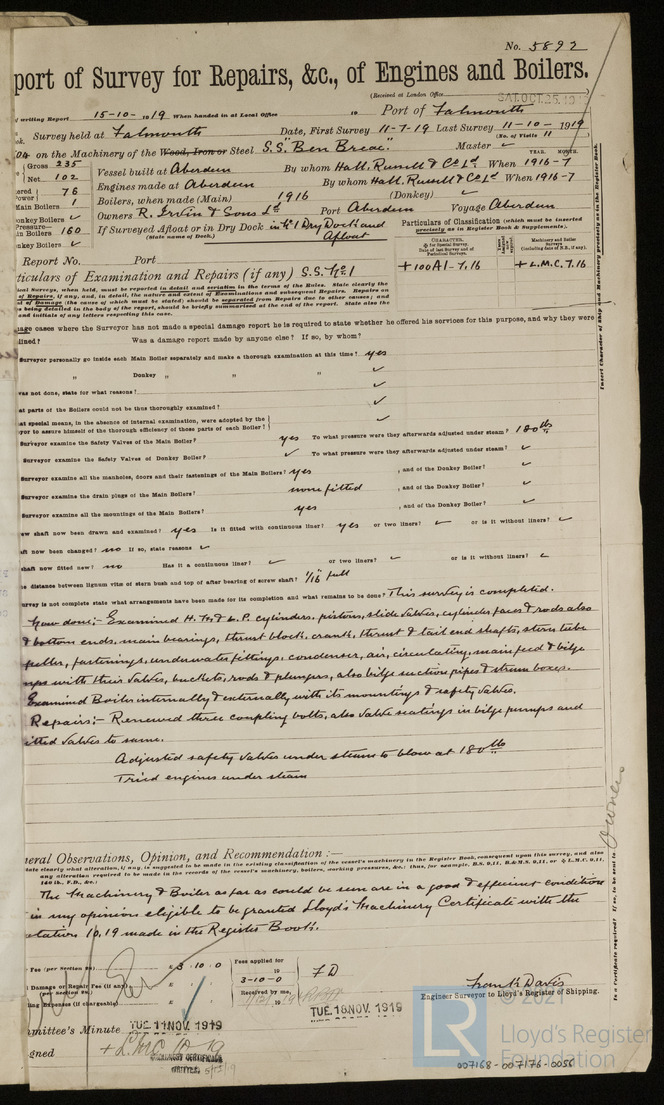 No. 5892
port of Survey for Repairs, &c., of Engines and Boilers.
(Received at London Office SAT. OCT. 25. 19
of writing Report 15-10-1919 When handed in at Local Office 19 Port of Falmouth
Survey held at Falmouth Date, First Survey 11-7-19 Last Survey 11-10-1919
(No. of Visits 11)
on the Machinery of the Wood, Iron or Steel S.S. "Ben Breac." Master ✓
YEAR. MONTH.
Gross 235 Vessel built at Aberdeen By whom Hall, Russell & Co Ld When 1916-7
Net 102 Engines made at Aberdeen By whom Hall, Russell & Co Ld When 1916-7
76
Main Boilers 1 Boilers, when made (Main) 1916 (Donkey) ✓
onkey Boilers ✓ Owners R. Irvin & Sons Ld Port Aberdeen Voyage Aberdeen
Pressure—
in Boilers 160 If Surveyed Afloat or in Dry Dock in No 1 Dry Dock and Afloat
(State name of Dock.)
onkey Boilers ✓
Particulars of Classification (which must be inserted precisely as in Register Book & Supplements).
Report No. Port
+100A1-7.16 +L.M.C. 7.16
ticulars of Examination and Repairs (if any) S.S. No 1
age cases where the Surveyor has not made a special damage report he is required to state whether he offered his services for this purpose, and why they were
lined? Was a damage report made by anyone else? If so, by whom?
Surveyor personally go inside each Main Boiler separately and make a thorough examination at this time? yes
" Donkey " " " ✓
was not done, state for what reasons? ✓
at parts of the Boilers could not be thus thoroughly examined? ✓
at special means, in the absence of internal examination, were adopted by the
yor to assure himself of the thorough efficiency of those parts of each Boiler? ✓
Surveyor examine the Safety Valves of the Main Boiler? yes To what pressure were they afterwards adjusted under steam? 180 lbs
Surveyor examine the Safety Valves of Donkey Boiler? ✓ To what pressure were they afterwards adjusted under steam? ✓
Surveyor examine all the manholes, doors and their fastenings of the Main Boilers? yes , and of the Donkey Boiler? ✓
Surveyor examine the drain plugs of the Main Boilers? none fitted , and of the Donkey Boiler? ✓
Surveyor examine all the mountings of the Main Boilers? yes , and of the Donkey Boiler? ✓
ew shaft now been drawn and examined? yes Is it fitted with continuous liner? yes or two liners? ✓ or is it without liners? ✓
aft now been changed? no If so, state reasons ✓
shaft now fitted new? no Has it a continuous liner? ✓ or two liners? ✓ or is it without liners? ✓
e distance between lignum vitæ of stern bush and top of after bearing of screw shaft? 1/16 full
urvey is not complete state what arrangements have been made for its completion and what remains to be done? This survey is completed.
Now done:- Examined H.M & L.P. cylinders, pistons, slide valves, cylinder faces & rods also
& bottom ends, main bearings, thrust block, crank, thrust & tail end shafts, stern tube
peller, fastenings, underwater fittings, condenser, air, circulating, main feed & bilge
mps with their valves, buckets, rods & plungers, also bilge suction pipes & strum boxes.
Examined Boiler internally & externally with its mountings & safety valves.
Repairs:- Renewed three coupling bolts, also valve seatings in bilge pumps and
itted valves to same.
Adjusted safety valves under steam to blow at 180 lbs
Tried engines under steam
neral Observations, Opinion, and Recommendation :—
The Machinery & Boiler as far as could be seen are in a good & efficient condition
in my opinion eligible to be granted Lloyd's Machinery Certificate with the
otation 10.19 made in the Register Book.
Fee (per Section 28) £3.10.0 Fees applied for
19
Damage or Repair Fee (if any) £ 3-10-0 FD
(per Section 28.)
ling Expenses (if chargeable) £ Received by me, 19
Frank Davis
Engineer Surveyor to Lloyd's Register of Shipping.
TUE. 18 NOV. 1919
mmittee's Minute TUE. 11 NOV. 1919
gned + L.M.C. 10.19
MACHINERY CERTIFICATE
WRITTEN
Insert Character of Ship and Machinery precisely as in the Register Book.
Is a Certificate required? If so, to be sent to Owners
© 2021
LR
Lloyd's Register
Foundation
007168-007176-0056